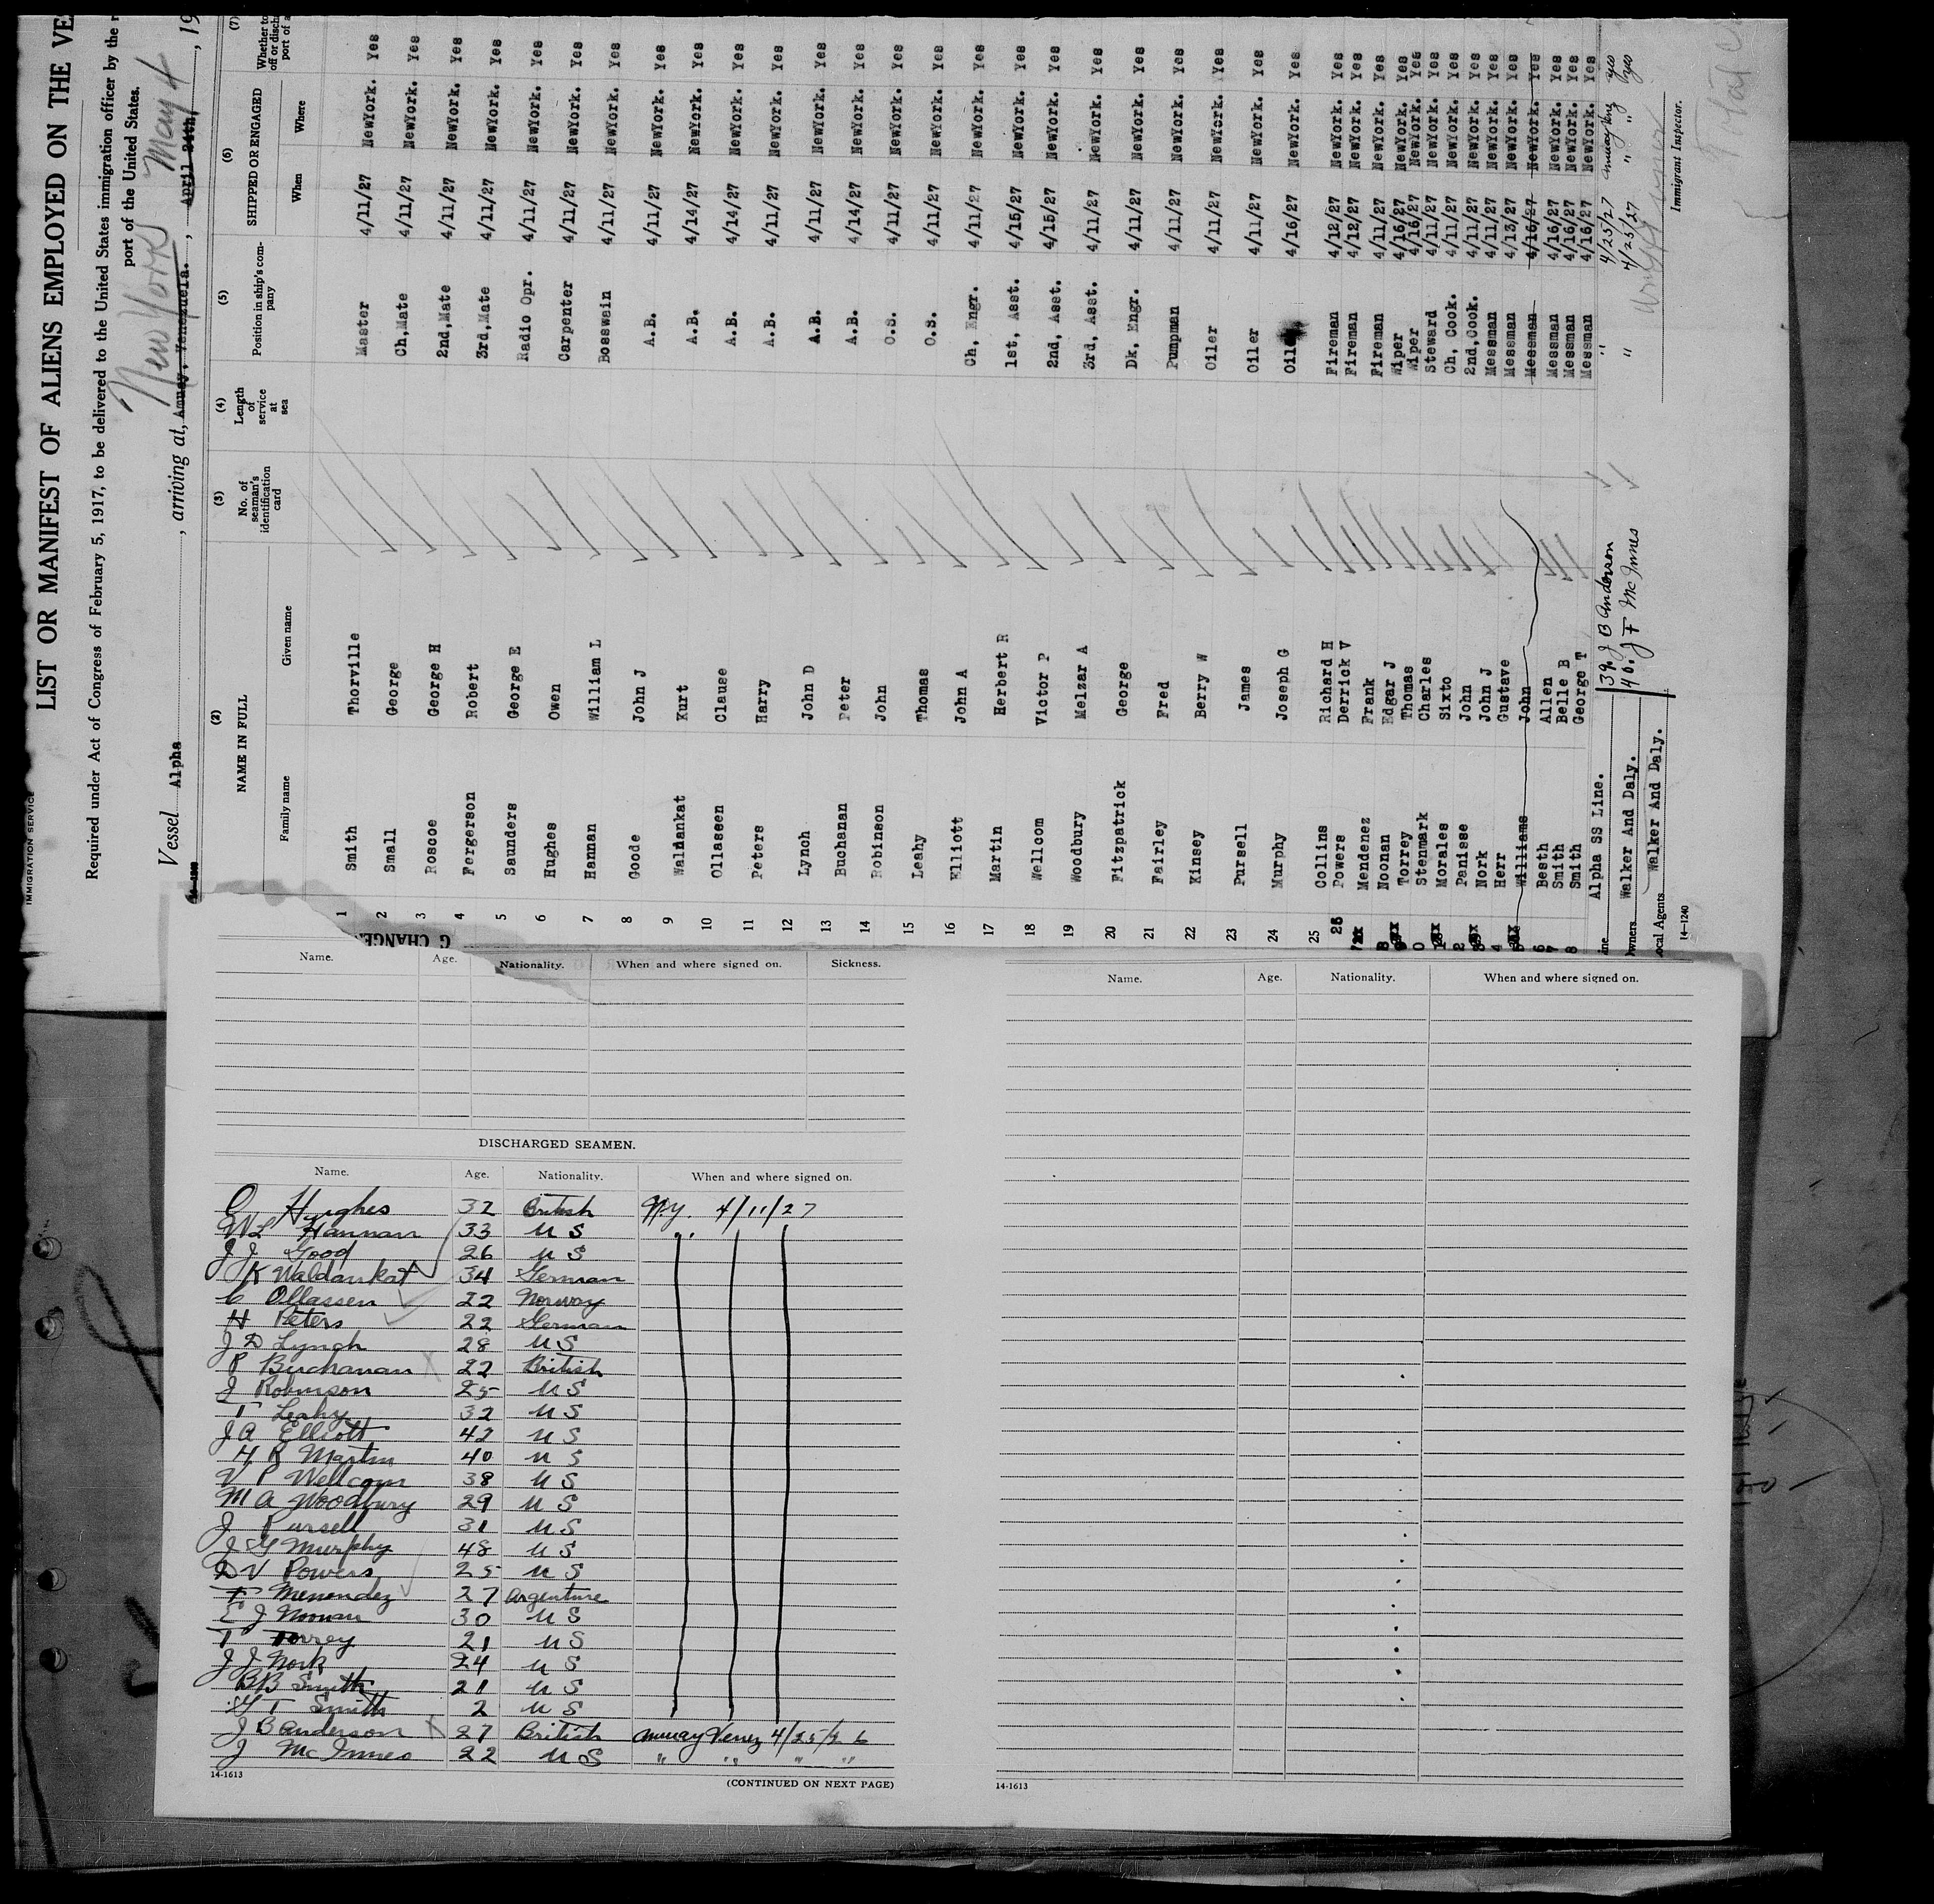 IMMIGRATION SERVICE
LIST OR MANIFEST OF ALIENS EMPLOYED ON THE VE
Required under Act of Congress of February 5, 1917, to be delivered to the United States immigration officer by the
port of the United States.
New York May 4
Vessel Alpha , arriving at, Amuay, Venezuela. , April 24th, , 19
(2) (3) (4) (5) (6) (7)
NAME IN FULL No. of seaman's identification card Length of service at sea Position in ship's company SHIPPED OR ENGAGED Whether to
off or disch
port of a
Family name Given name When Where
1 Smith Thorville Master 4/11/27 NewYork. Yes
2 Small George Ch,Mate 4/11/27 NewYork. Yes
3 Roscoe George H 2nd,Mate 4/11/27 NewYork. Yes
4 Fergerson Robert 3rd,Mate 4/11/27 NewYork. Yes
5 Saunders George E Radio Opr. 4/11/27 NewYork. Yes
6 Hughes Owen Carpenter 4/11/27 NewYork. Yes
7 Hannan William L Bosswain 4/11/27 NewYork. Yes
8 Goode John J A.B. 4/11/27 NewYork. Yes
9 Waldankat Kurt A.B. 4/14/27 NewYork. Yes
10 Ollaseen Clause A.B. 4/14/27 NewYork. Yes
11 Peters Harry A.B. 4/11/27 NewYork. Yes
12 Lynch John D A.B. 4/11/27 NewYork. Yes
13 Buchanan Peter A.B. 4/14/27 NewYork. Yes
14 Robinson John O.S. 4/11/27 NewYork. Yes
15 Leahy Thomas O.S. 4/11/27 NewYork. Yes
16 Elliott John A Ch, Engr. 4/11/27 NewYork. Yes
17 Martin Herbert R 1st, Asst. 4/15/27 NewYork. Yes
18 Wellcom Victor P 2nd, Asst. 4/15/27 NewYork. Yes
19 Woodbury Melzar A 3rd, Asst. 4/11/27 NewYork. Yes
20 Fitzpatrick George Dk, Engr. 4/11/27 NewYork. Yes
21 Fairley Fred Pumpman 4/11/27 NewYork. Yes
22 Kinsey Berry W Oiler 4/11/27 NewYork. Yes
23 Pursell James Oiler 4/11/27 NewYork. Yes
24 Murphy Joseph G Oiler 4/16/27 NewYork. Yes
25 Collins Richard H Fireman 4/12/27 NewYork. Yes
26 Powers Derrick V Fireman 4/12/27 NewYork. Yes
7 Mendenez Frank Fireman 4/11/27 NewYork. Yes
8 Noonan Edgar J Wiper 4/16/27 NewYork. Yes
9 Torrey Thomas Wiper 4/16/27 NewYork. Yes
0 Stenmark Charles Steward 4/11/27 NewYork. Yes
1 Morales Sixto Ch, Cook. 4/11/27 NewYork. Yes
2 Panise John 2nd,Cook. 4/11/27 NewYork. Yes
3 Nork John J Messman 4/11/27 NewYork. Yes
4 Herr Gustave Messman 4/13/27 NewYork. Yes
5 Williams John Messman 4/16/27 NewYork. Yes
6 Besth Allen Messman 4/16/27 NewYork. Yes
7 Smith Belle B Messman 4/16/27 NewYork. Yes
8 Smith George T Messman 4/16/27 NewYork. Yes
39. J B Anderson " 4/25/27 Amuay Yes
40. J F McInnes " 4/25/27 " " Yes
ine Alpha SS Line.
wners Walker And Daly.
ocal Agents Walker And Daly.
Immigrant Inspector.
14-1240
G CHANGE
Name. Age. Nationality. When and where signed on. Sickness.
DISCHARGED SEAMEN.
Name. Age. Nationality. When and where signed on.
O Hughes 32 British N.Y. 4/11/27
W L Hannan 33 U S " 
J J Good 26 U S
K Waldankat 34 German
C Ollassen 22 Norway
H Peters 22 German
J D Lynch 28 U S
P Buchanan X 22 British
J Robinson 25 U S
T Leahy 32 U S
J A Elliott 42 U S
H R Martin 40 U S
V P Wellcom 38 U S
M A Woodbury 29 U S
J Pursell 31 U S
J G Murphy 48 U S
D V Powers 25 U S
F Menendez 27 Argentine
E J Noonan 30 U S
T Torrey 21 U S
J J Nork 24 U S
B B Smith 21 U S
G T Smith 2 U S
J B Anderson X 27 British Amuay Venez 4/25/26
J McInnes 22 U S " " " "
14-1613
(CONTINUED ON NEXT PAGE)
Name. Age. Nationality. When and where signed on.
14-1613